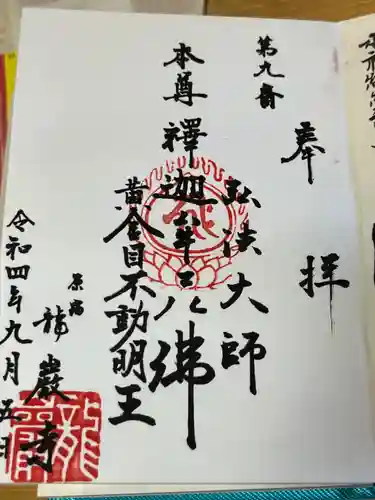 奉拝
第九番
弘法大師
本尊釋迦牟尼佛
黄金目不動明王
原宿
龍巖寺
令和四年九月五日